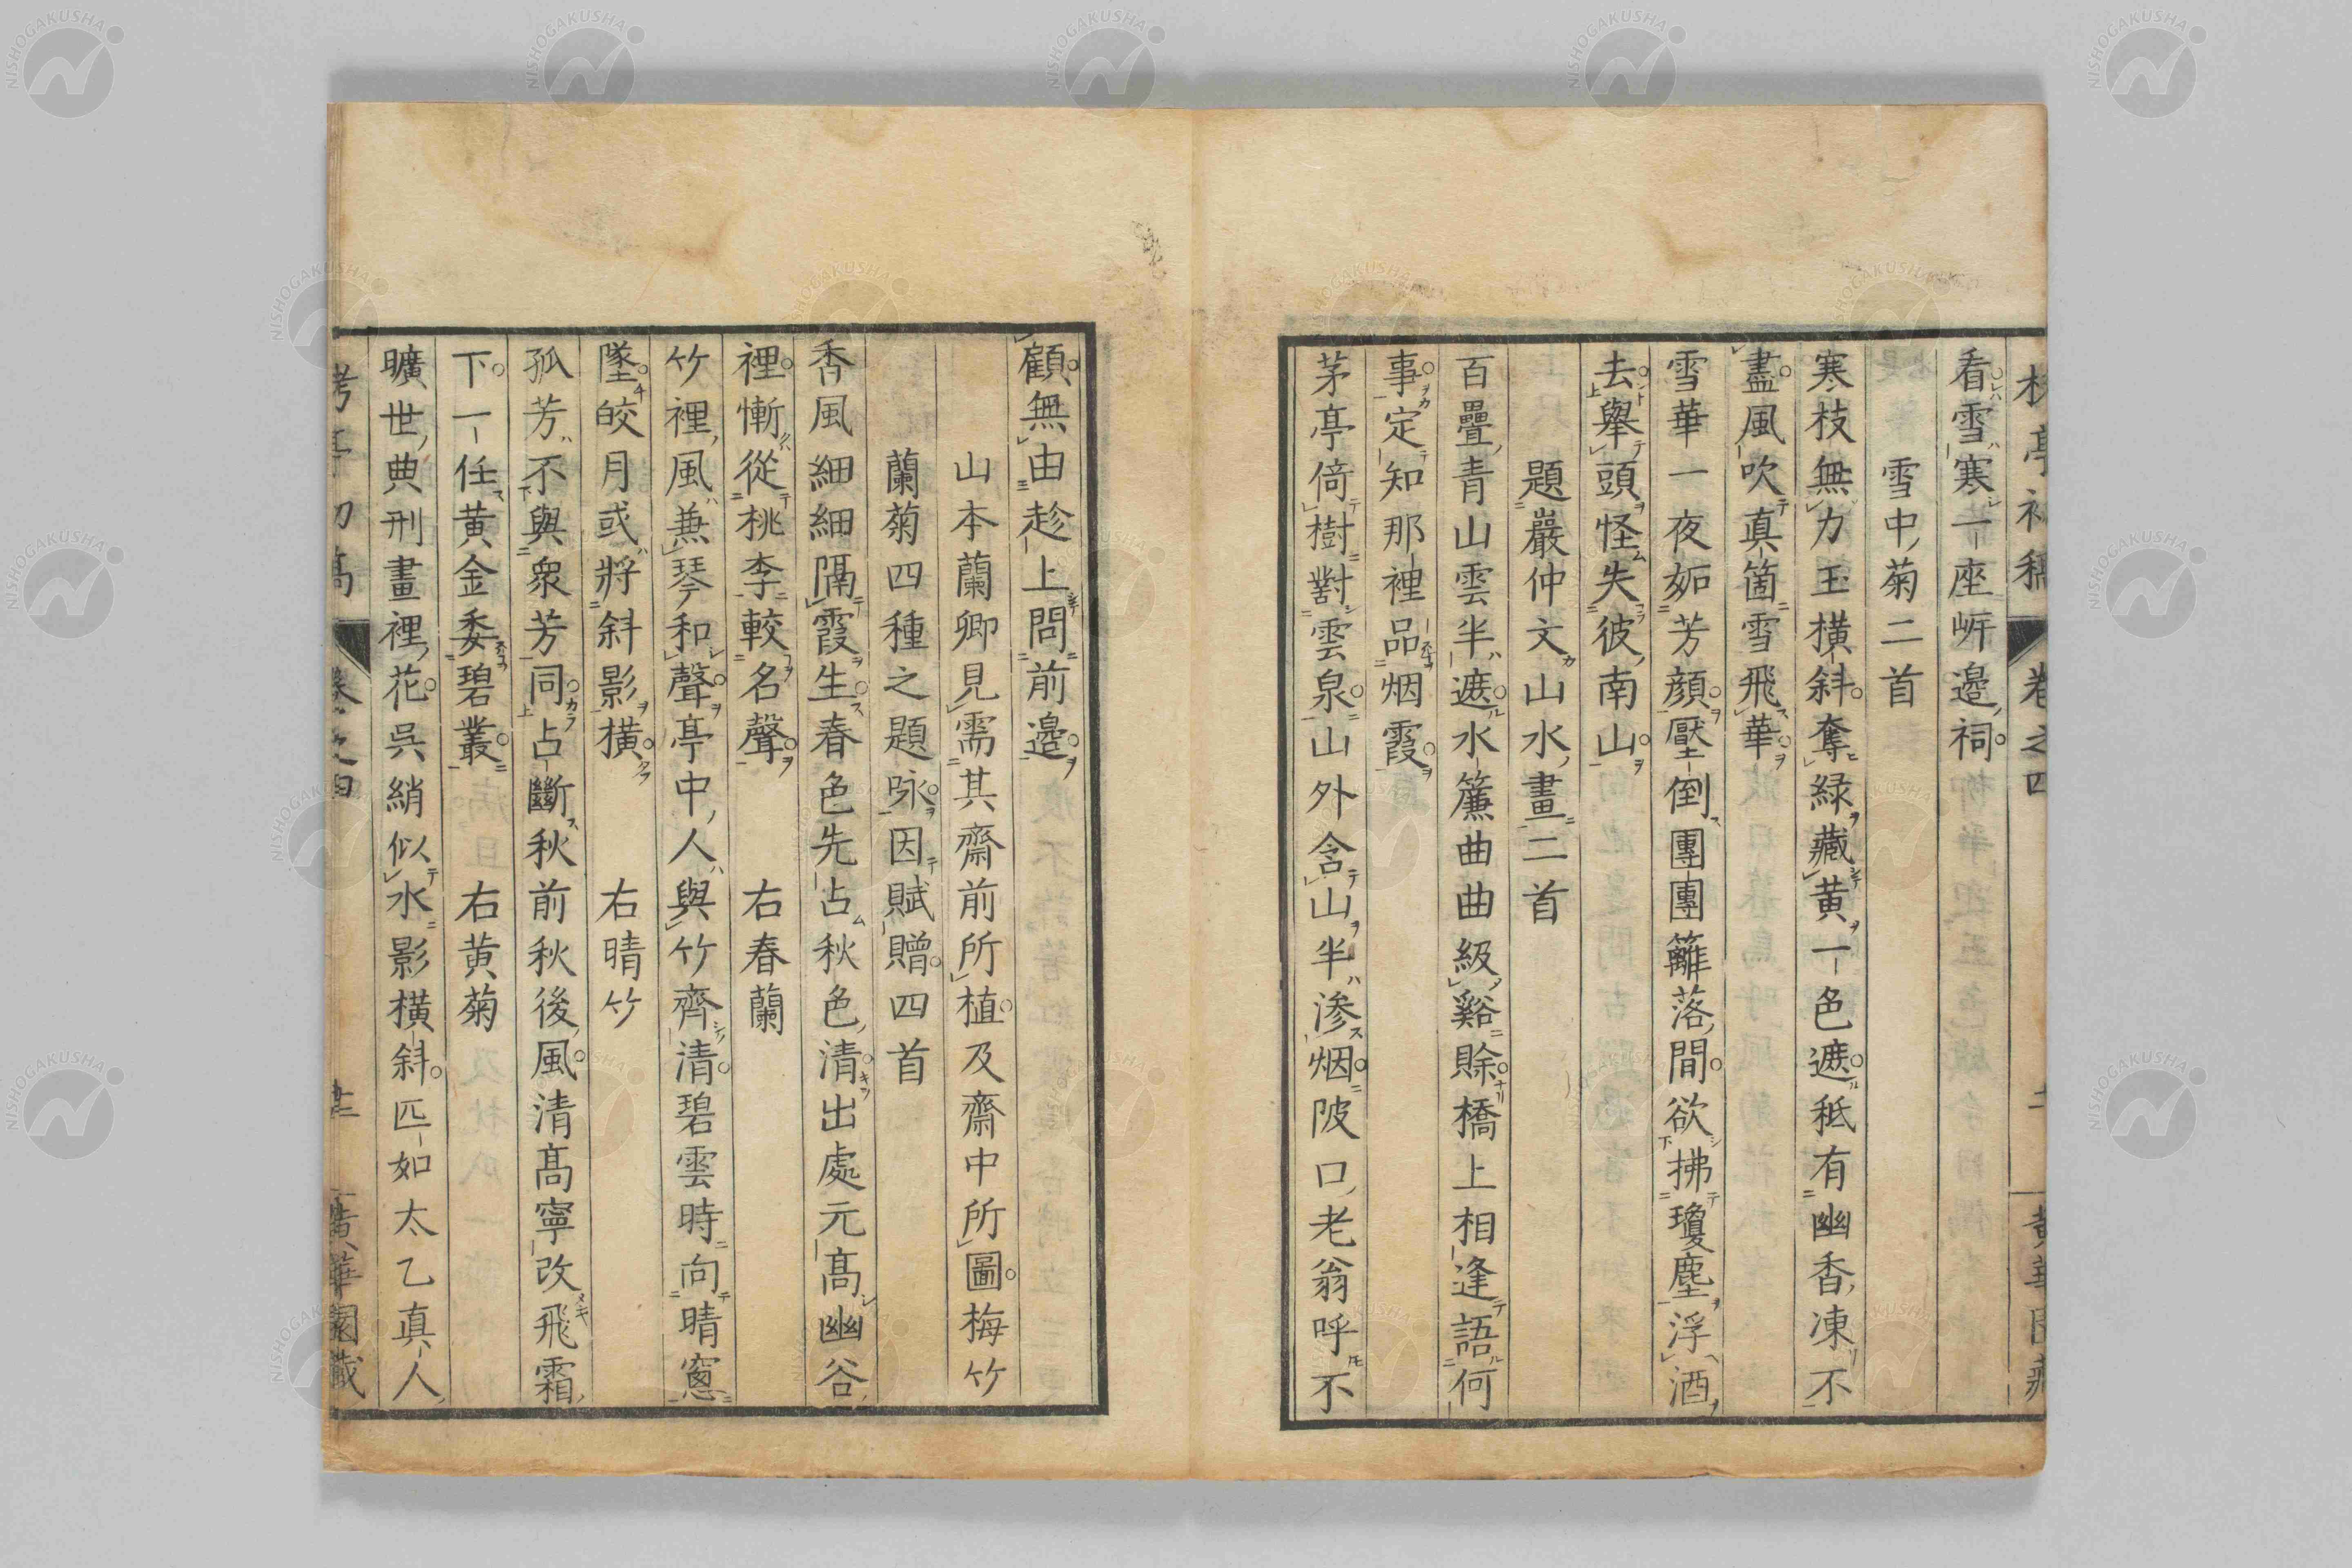 看雪寒一座㟁邉祠
雪中菊二首
寒枝無力玉橫斜奪緑藏黄一色遮秪有幽香凍不
盡風吹真箇雪飛華
雪華一夜妬芳顔壓倒團團籬落間欲拂瓊塵浮酒
去舉頭怪失彼南山
題巖仲文山水畫二首
百疊青山雲半遮水簾曲曲級谿賒橋上相逢語何
事定知那裡品烟霞
茅亭倚樹對雲泉山外含山半滲烟陂口老翁呼不
顧無由趁上問前邉
山本蘭卿見需其齋前所植及齋中所圖梅竹
蘭菊四種之題咏因賦贈四首
香風細細隔霞生春色先占秋色清出處元髙幽谷
裡慚從桃李較名聲
右春蘭
竹裡風兼琴和聲亭中人與竹齊清碧雲時向晴窻
墜皎月或將斜影橫
右晴竹
孤芳不與衆芳同占斷秋前秋後風清髙寧改飛霜
下一任黄金委碧叢
右黄菊
曠世典刑畫裡花呉綃似水影橫斜匹如太乙真人